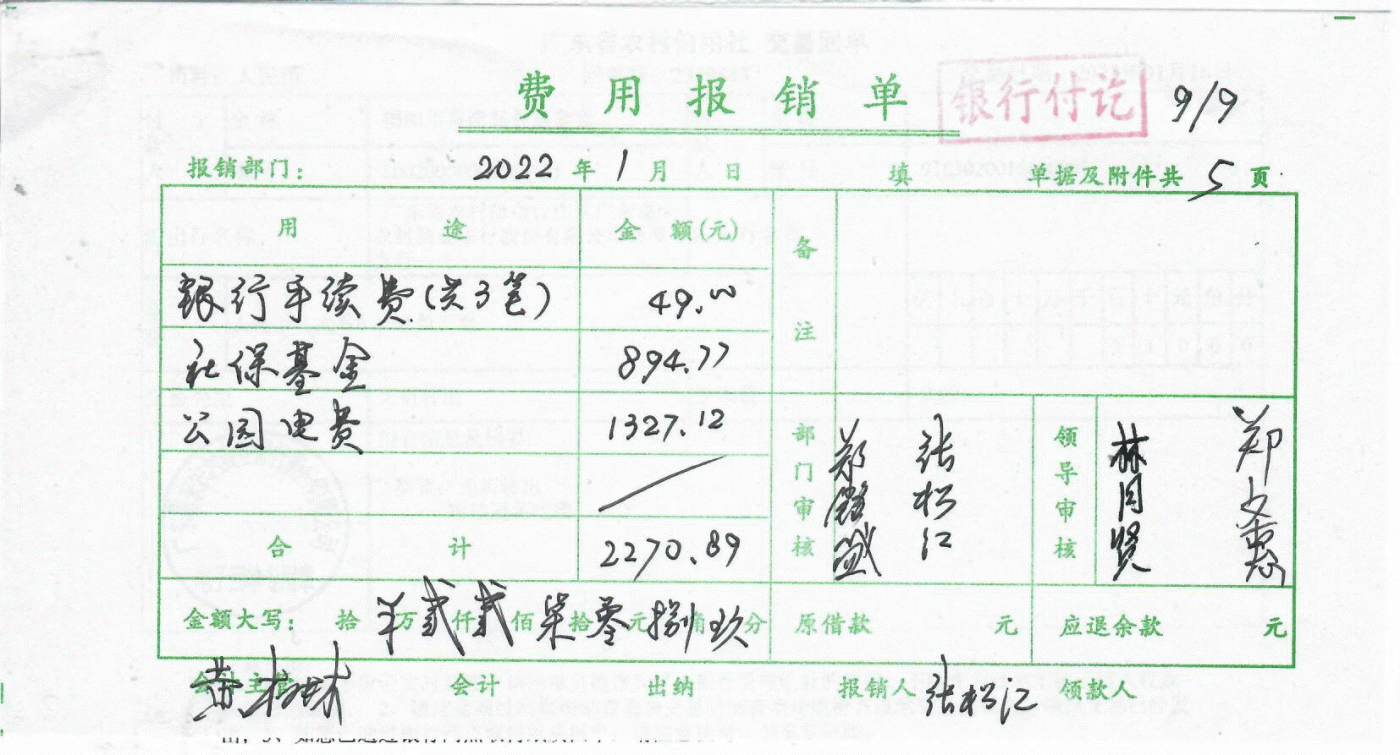 费用报销单 银行付讫 9/9
报销部门: 2022年1月 日 填 单据及附件共5页
用途 金额(元) 备注
银行手续费(共3笔) 49.00
社保基金 894.77
公园电费 1327.12
部门审核 张松江 领导审核 林月贤 郑文惠
合计 2270.89
金额大写: 拾 ¥万贰仟贰佰柒拾零元捌角玖分 原借款 元 应退余款 元
会计主管 会计 出纳 报销人 张松江 领款人